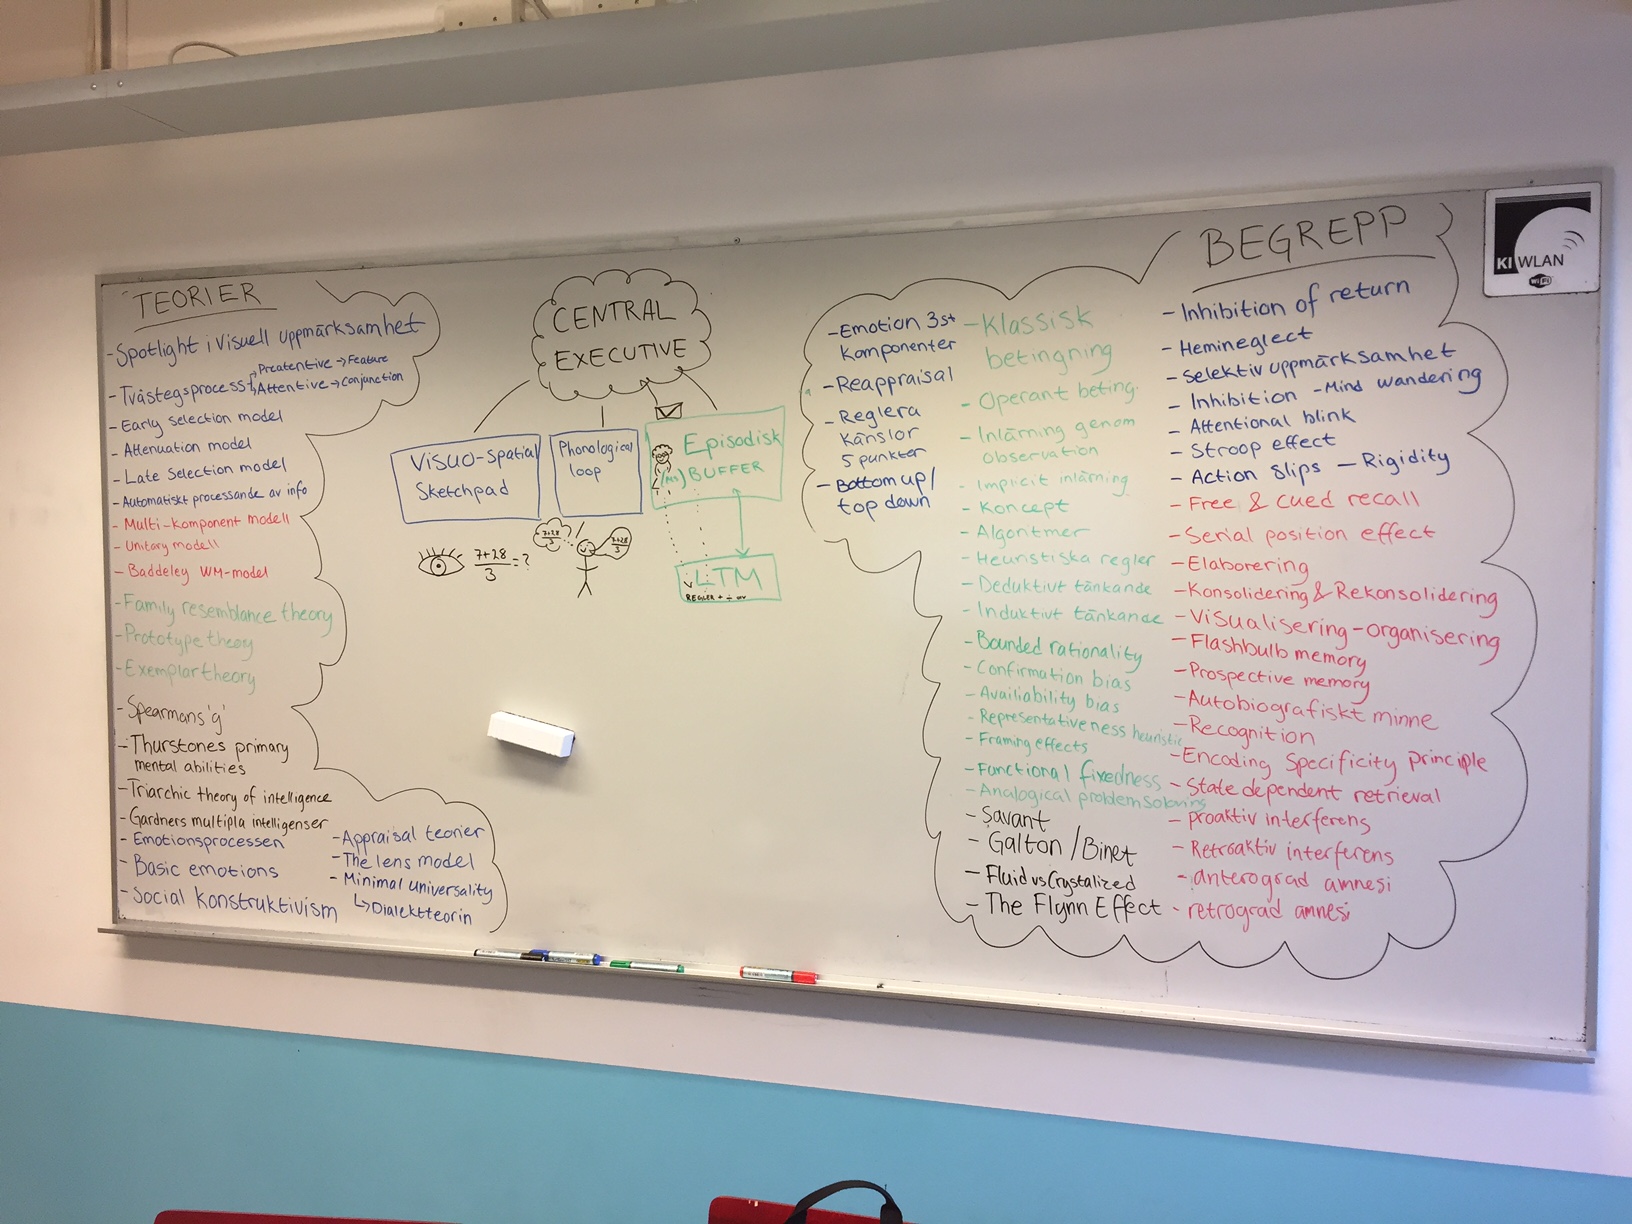 TEORIER
- Spotlight i visuell uppmärksamhet
- Tvåstegsprocess
Preatentive → Feature
Attentive → Conjunction
- Early selection model
- Attenuation model
- Late selection model
- Automatiskt processande av info
- Multi-komponent modell
- Unitary modell
- Baddeley WM-model
- Family resemblance theory
- Prototype theory
- Exemplar theory
- Spearmans 'g'
- Thurstones primary
mental abilities
- Triarchic theory of intelligence
- Gardners multipla intelligenser
- Emotionsprocessen
- Basic emotions
- Social konstruktivism
- Appraisal teorier
- The lens model
- Minimal universality
↳ Dialektteorin
CENTRAL
EXECUTIVE
Visuo-spatial
Sketchpad
Phonological
loop
Episodisk
BUFFER
7+28
3
= ?
7+28
3
7+28
3
LTM
REGLER + ÷ av
BEGREPP
- Emotion 3st
komponenter
- Reappraisal
- Reglera
känslor
5 punkter
- Bottom up/
top down
- Klassisk
betingning
- Operant beting.
- Inlärning genom
observation
- Implicit inlärning
- Koncept
- Algoritmer
- Heuristiska regler
- Deduktivt tänkande
- Induktivt tänkande
- Bounded rationality
- Confirmation bias
- Availiability bias
- Representativeness heuristic
- Framing effects
- Functional fixedness
- Analogical problem solving
- Savant
- Galton / Binet
- Fluid vs Crystalized
- The Flynn Effect
- Inhibition of return
- Hemineglect
- Selektiv uppmärksamhet
- Inhibition - Mind wandering
- Attentional blink
- Stroop effect
- Action slips - Rigidity
- Free & cued recall
- Serial position effect
- Elaborering
- Konsolidering & Rekonsolidering
- Visualisering - organisering
- Flashbulb memory
- Prospective memory
- Autobiografiskt minne
- Recognition
- Encoding Specificity principle
- State dependent retrieval
- proaktiv interferens
- Retroaktiv interferens
- anterograd amnesi
- retrograd amnesi
KI WLAN
WiFi